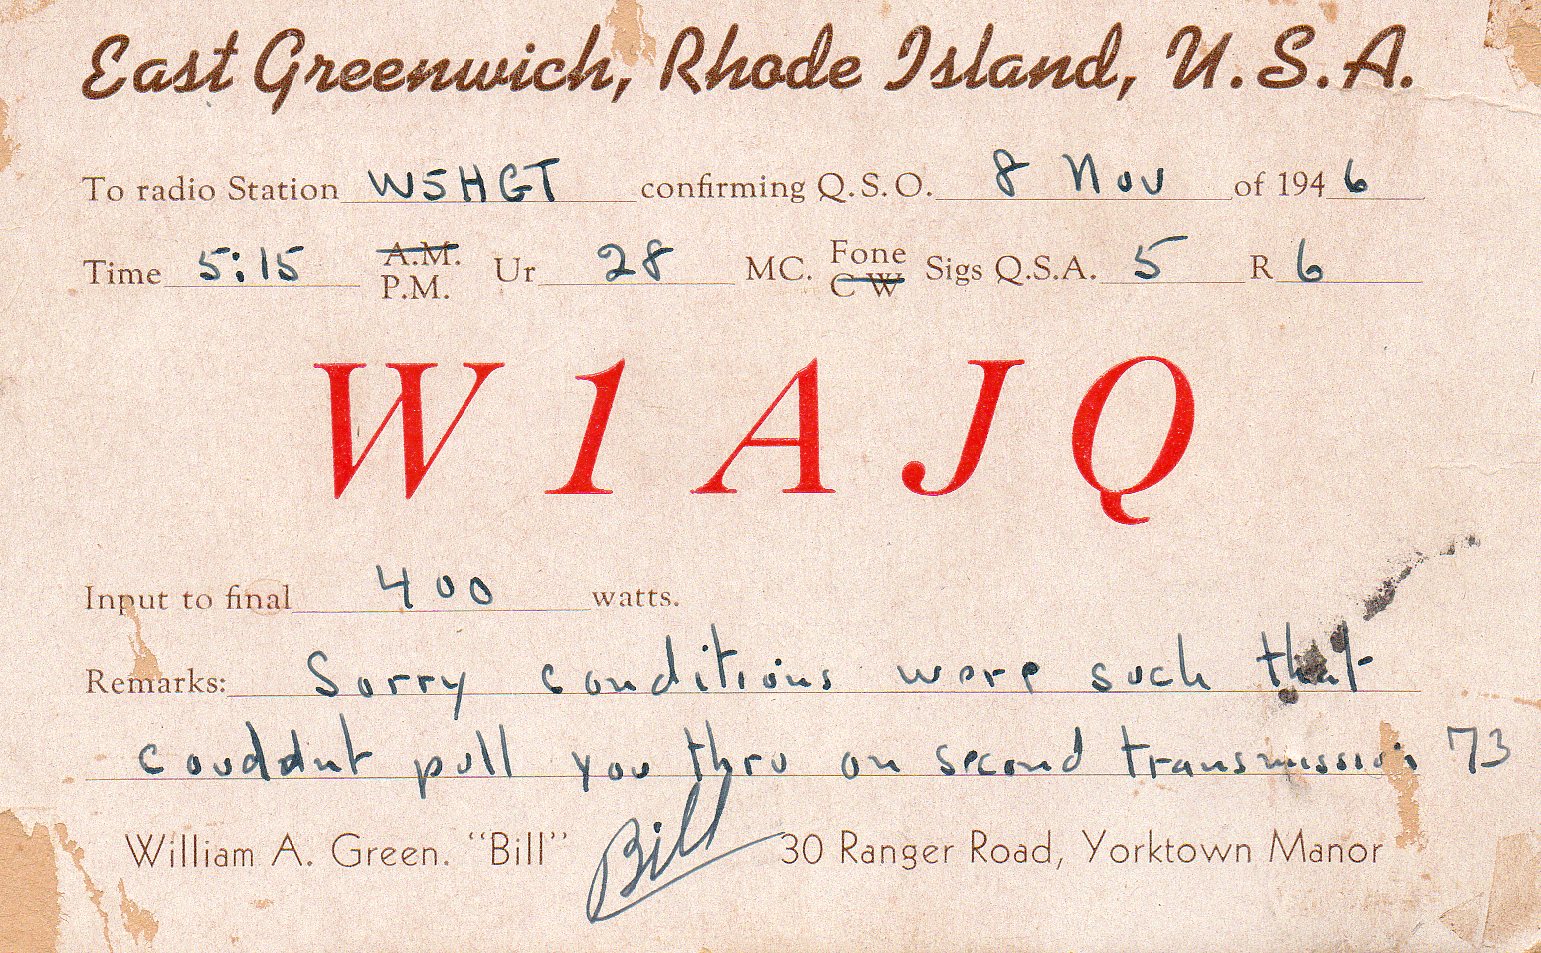 East Greenwich, Rhode Island, U.S.A.
To radio Station W5HGT confirming Q.S.O. 8 Nov of 1946
Time 5:15 A.M. P.M. Ur 28 MC. Fone CW Sigs Q.S.A. 5 R 6
W1AJQ
Input to final 400 watts.
Remarks: Sorry conditions were such that
couddnt pull you thru on second transmission 73
William A. Green. "Bill" Bill 30 Ranger Road, Yorktown Manor